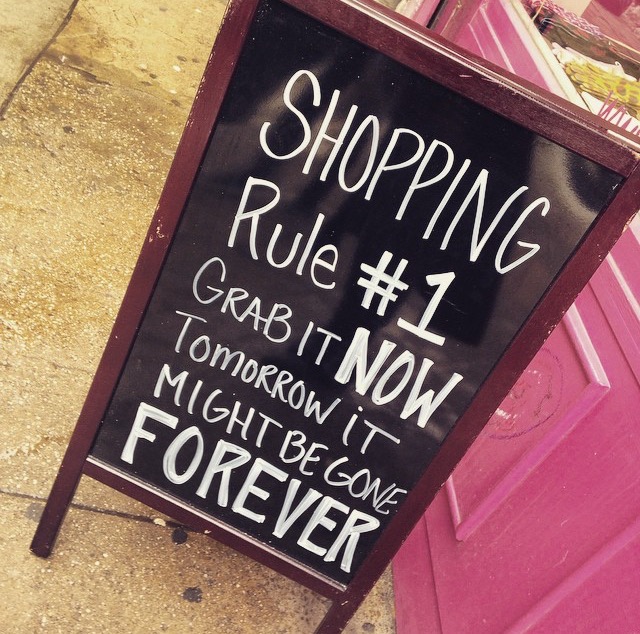 SHOPPING
Rule #1
GRAB IT NOW
TOMORROW iT
MIGHT BE GONE
FOREVER